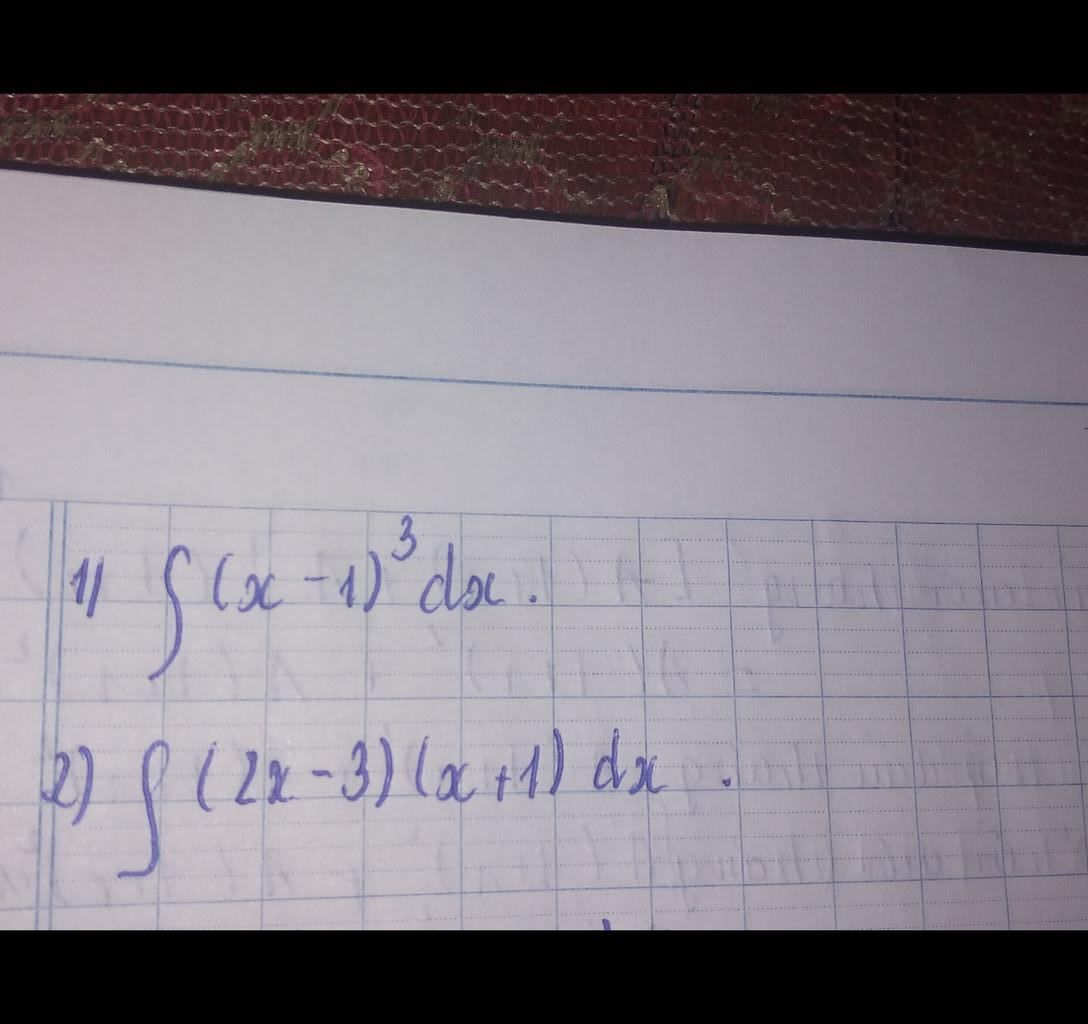 1) ∫(x-1)³dx.
2) ∫(2x-3)(x+1)dx.